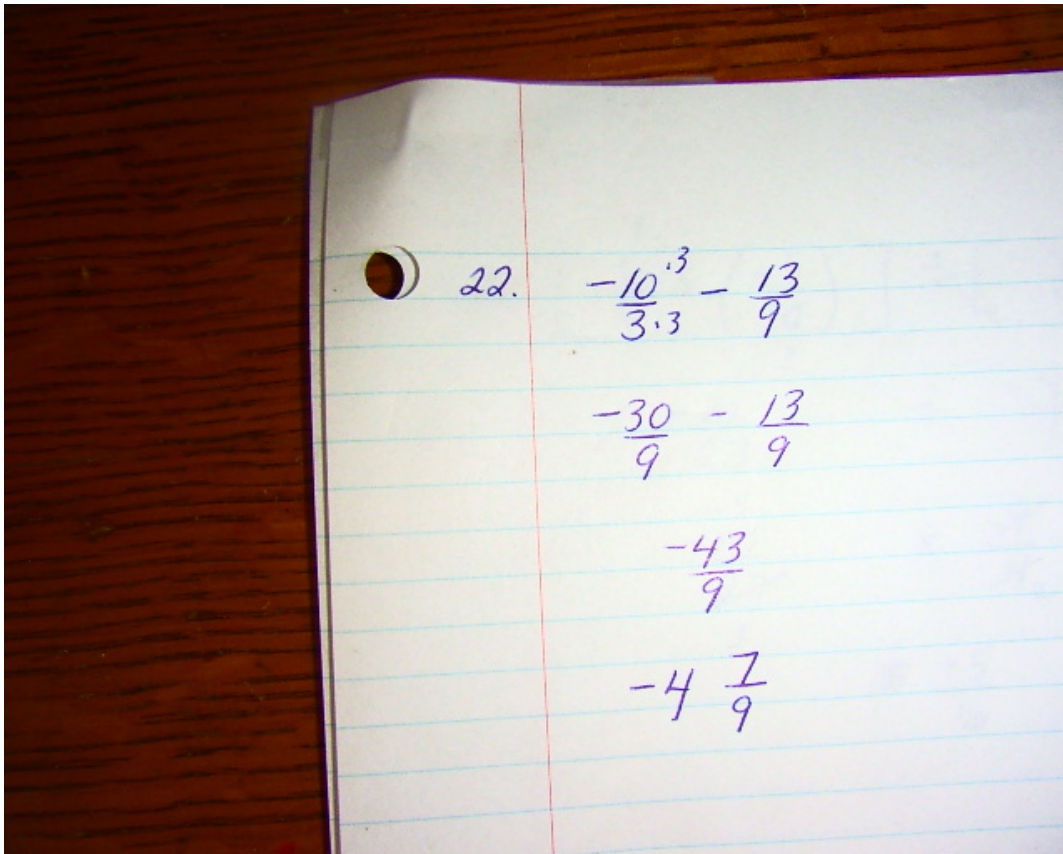 22. -10·3/3·3 - 13/9
-30/9 - 13/9
-43/9
-4 7/9